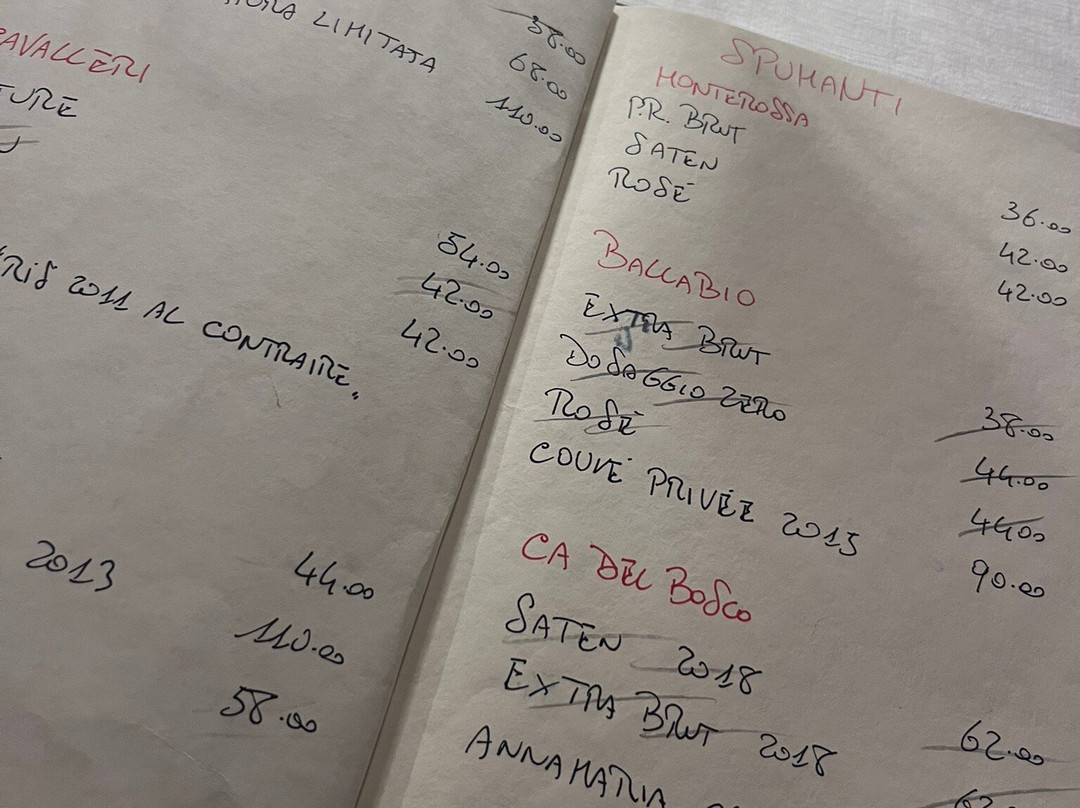 LIMITATA 38.00
68.00
110.00
CAVALLERI
TURE
54.00
42.00
42.00
2011 AL CONTRAIRE.
2013 44.00
110.00
58.00
SPUMANTI
MONTEROSSA
P.R. BRUT 36.00
SATEN 42.00
ROSÉ 42.00
BALLABIO
EXTRA BRUT 38.00
DOSAGGIO ZERO 44.00
ROSÉ 44.00
COUVÉ PRIVÉE 2015 90.00
CA DEL BOSCO
SATEN 2018 62.00
EXTRA BRUT 2018
ANNAMARIA